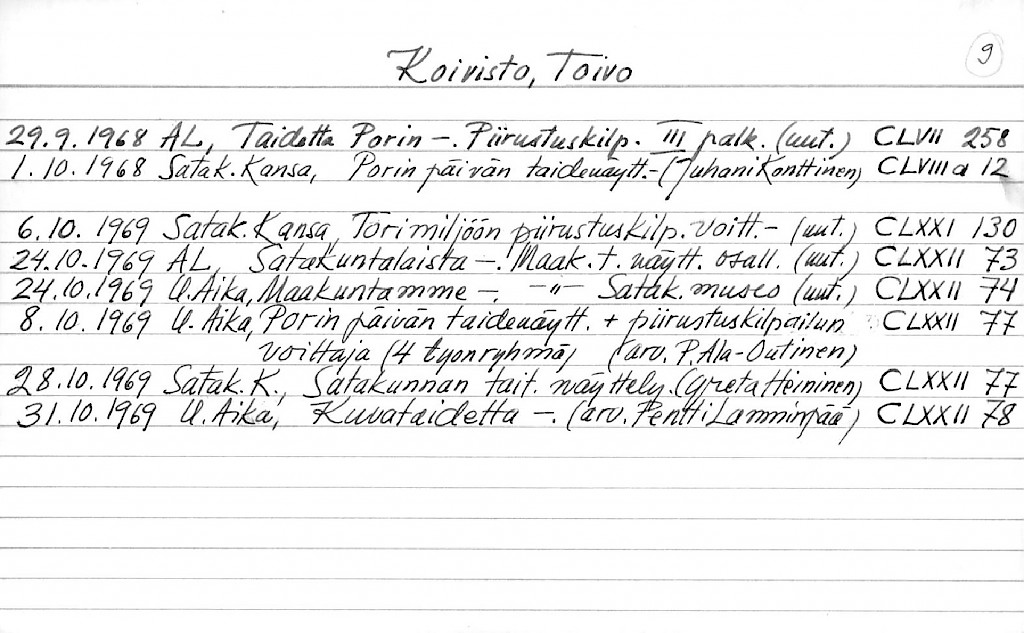 Koivisto, Toivo
9
29.9.1968 AL, Taidetta Porin -. Piirustuskilp. III palk. (uut.) CLVII 258
1.10.1968 Satak. Kansa, Porin päivän taidenäytt.- (Juhani Konttinen) CLVIII a 12
6.10.1969 Satak. Kansa, Torimiljöön piirustuskilp. voitt.- (uut.) CLXXI 130
24.10.1969 AL, Satakuntalaista -. Maak.t. näytt. osall. (uut.) CLXXII 73
24.10.1969 U. Aika, Maakuntamme -. -"- Satak. museo (uut.) CLXXII 74
8.10.1969 U. Aika, Porin päivän taidenäytt. + piirustuskilpailun CLXXII 77
voittaja (4 työnryhmä) (arv. P. Ala-Outinen)
28.10.1969 Satak. K., Satakunnan tait. näyttely. (Greta Heininen) CLXXII 77
31.10.1969 U. Aika, Kuvataidetta -. (arv. Pentti Lamminpää) CLXXII 78